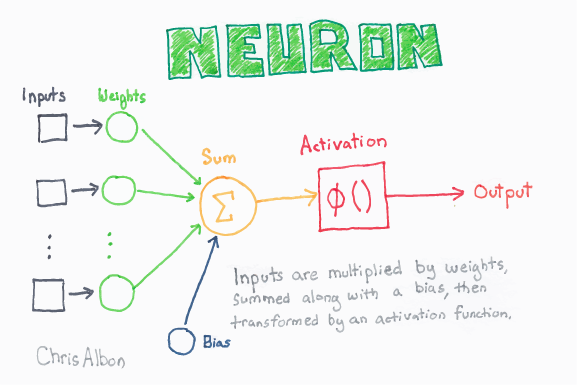 NEURON
Inputs
Weights
Activation
Sum
Σ
ϕ()
Output
Inputs are multiplied by weights,
summed along with a bias, then
transformed by an activation function.
Bias
Chris Albon